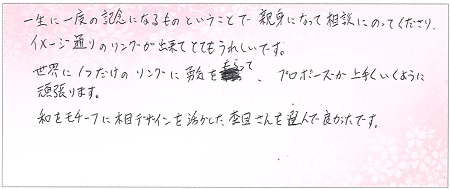 一生に一度の記念になるものということで親身になって相談にのってくださり、
イメージ通りのリングが出来てとてもうれしいです。
世界に1つだけのリングに勇気をもらって、プロポーズが上手くいくように
頑張ります。
和をモチーフに木目デザインを活かした杢目さんを選んで良かったです。